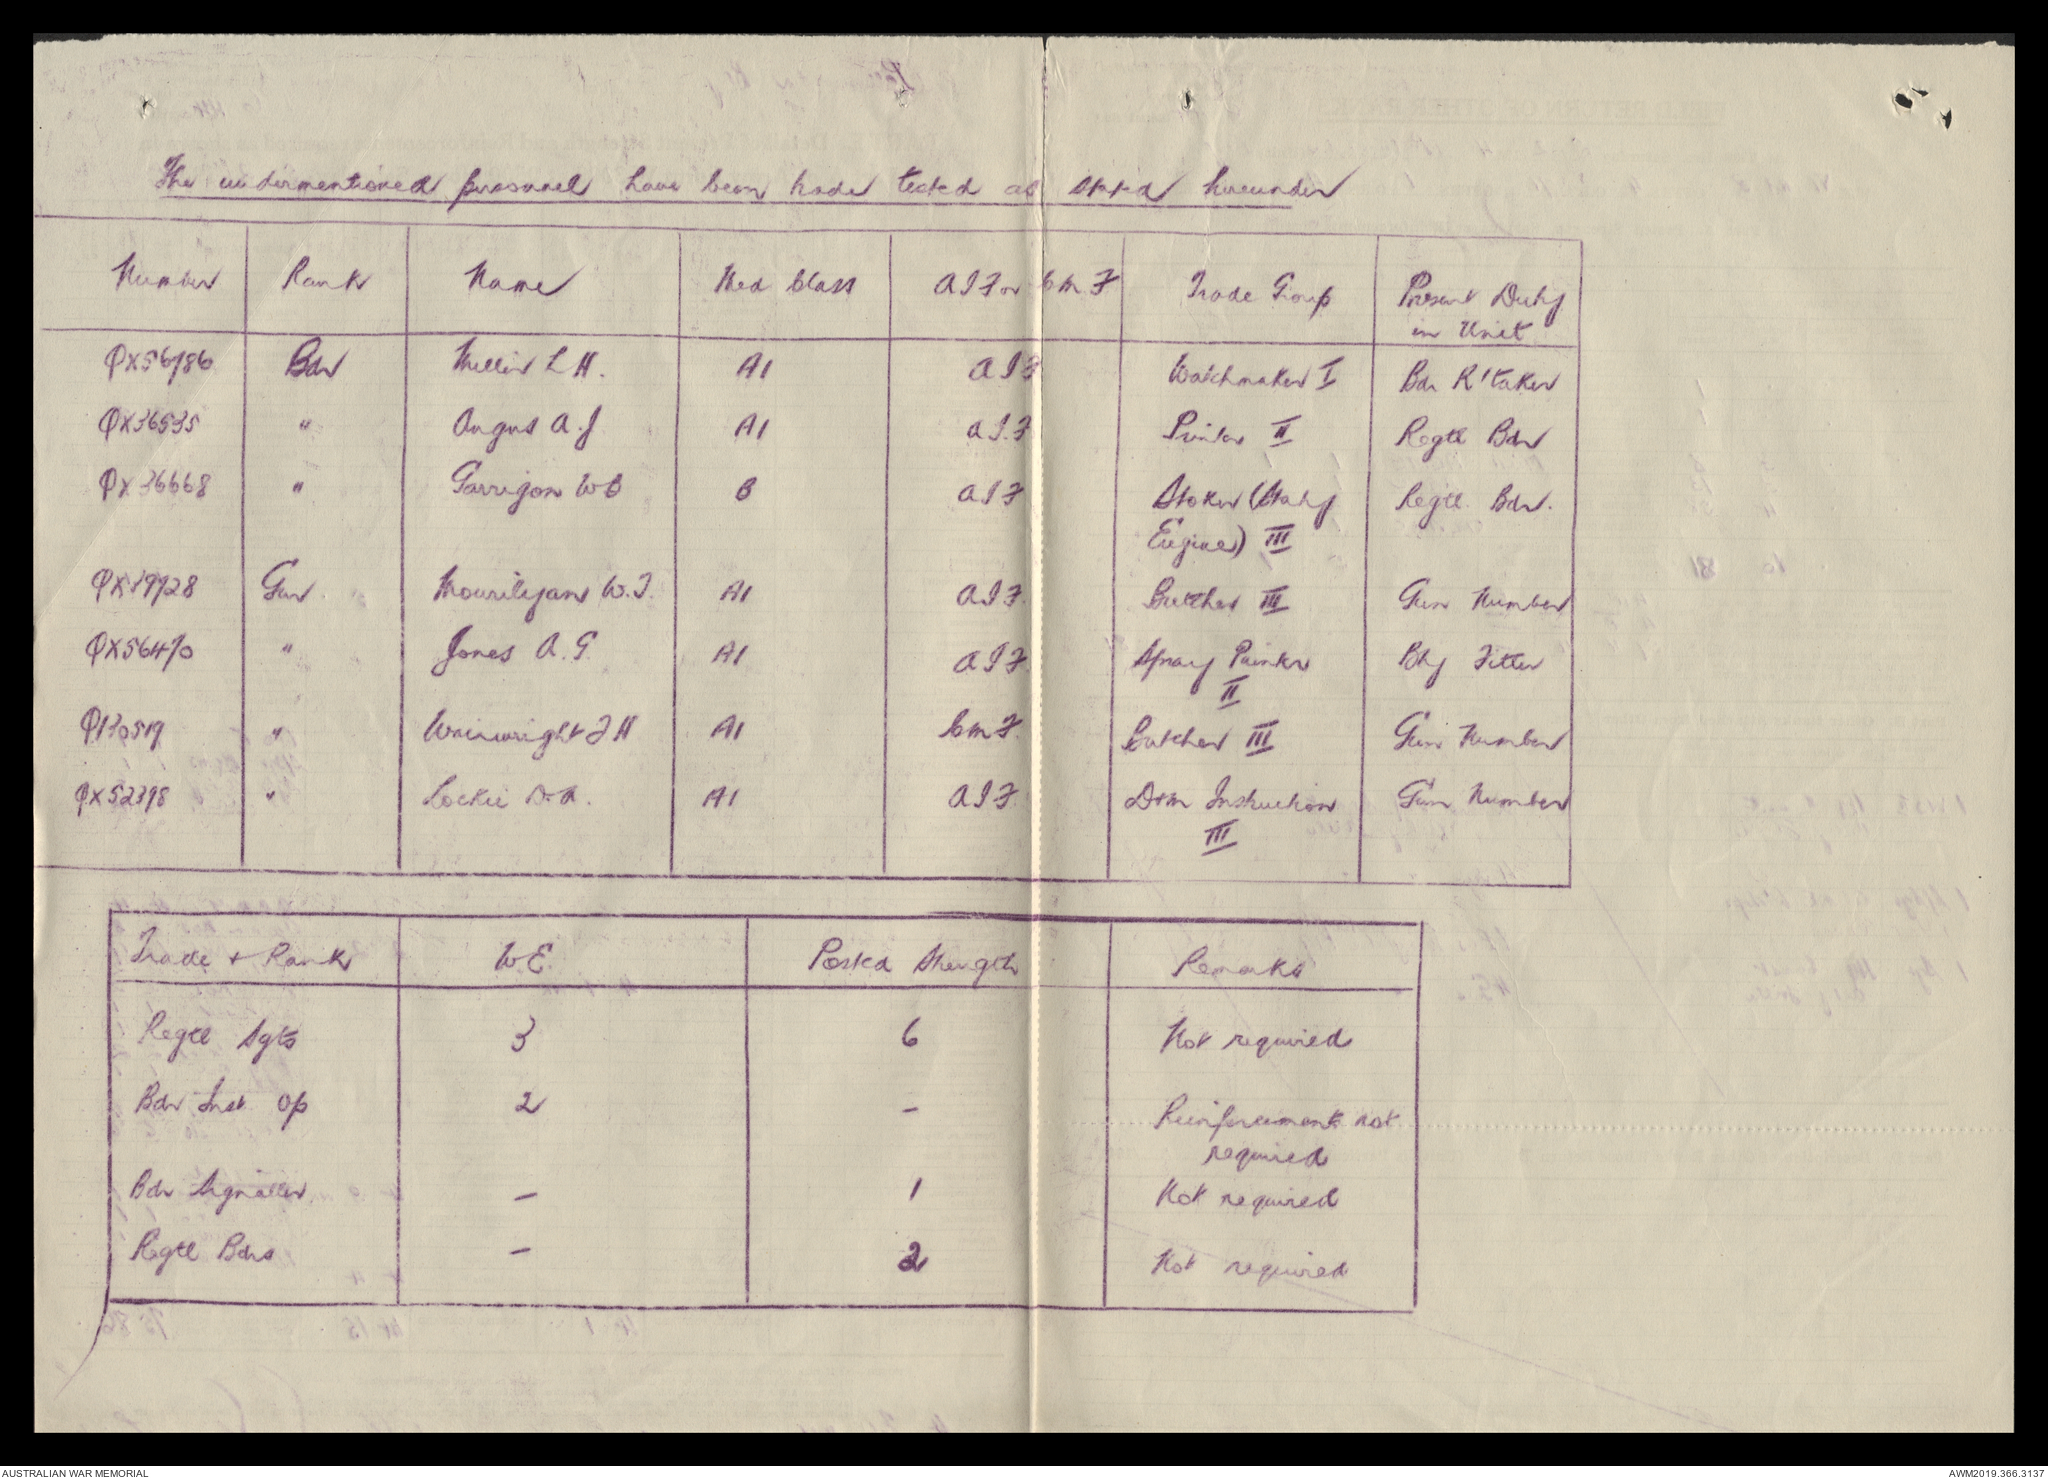 The undermentioned personnel have been trade tested as stated hereunder
Number Rank Name Med Class AIF or CMF Trade Group Present Duty
in Unit
QX56786 Bdr L H. A1 AIF Watchmaker I Bdr R/taker
QX36535 " Angus A.J A1 A.I.F Printer II Regtl Bdr
QX36668 " Garrigan W B AIF Stoker (Staty Regtl. Bdr.
Engines) III
QX19728 Gnr. Mourilyan W.J. A1 AIF. Butcher III Gun Number
QX56470 " Jones A.G. A1 AIF. Spray Painter Bty Fitter
II
Q130519 " Wainwright J H A1 CMF. Butcher III Gun Number
QX52398 " Lockie D.A. A1 AIF. D&M Instruction Gun Number
III
Trade + Rank W.E. Posted Strength Remarks
Regtl Sgts 3 6 Not required
Bdr Inst. Op 2 - Reinforcements not
required
Bdr Signaller. - 1 Not required
Regtl Bdrs - 2 Not required
AUSTRALIAN WAR MEMORIAL AWM2019.366.3137